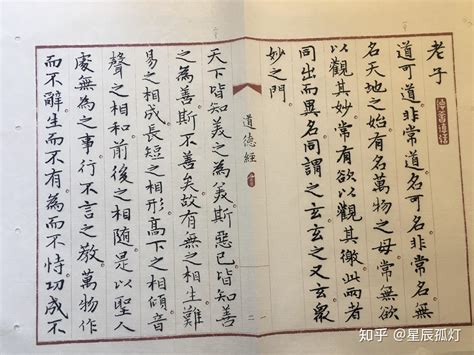 老子
道可道非常道名可名非常名無
名天地之始有名萬物之母常無欲
以觀其妙常有欲以觀其徼此兩者
同出而異名同謂之玄玄之又玄衆
妙之門
道德經
天下皆知美之為美斯惡已皆知善
之為善斯不善矣故有無之相生難
易之相成長短之相形高下之相傾音
聲之相和前後之相随是以聖人
處無為之事行不言之教萬物作
而不辭生而不有為而不恃功成不
知乎 @星辰孤灯